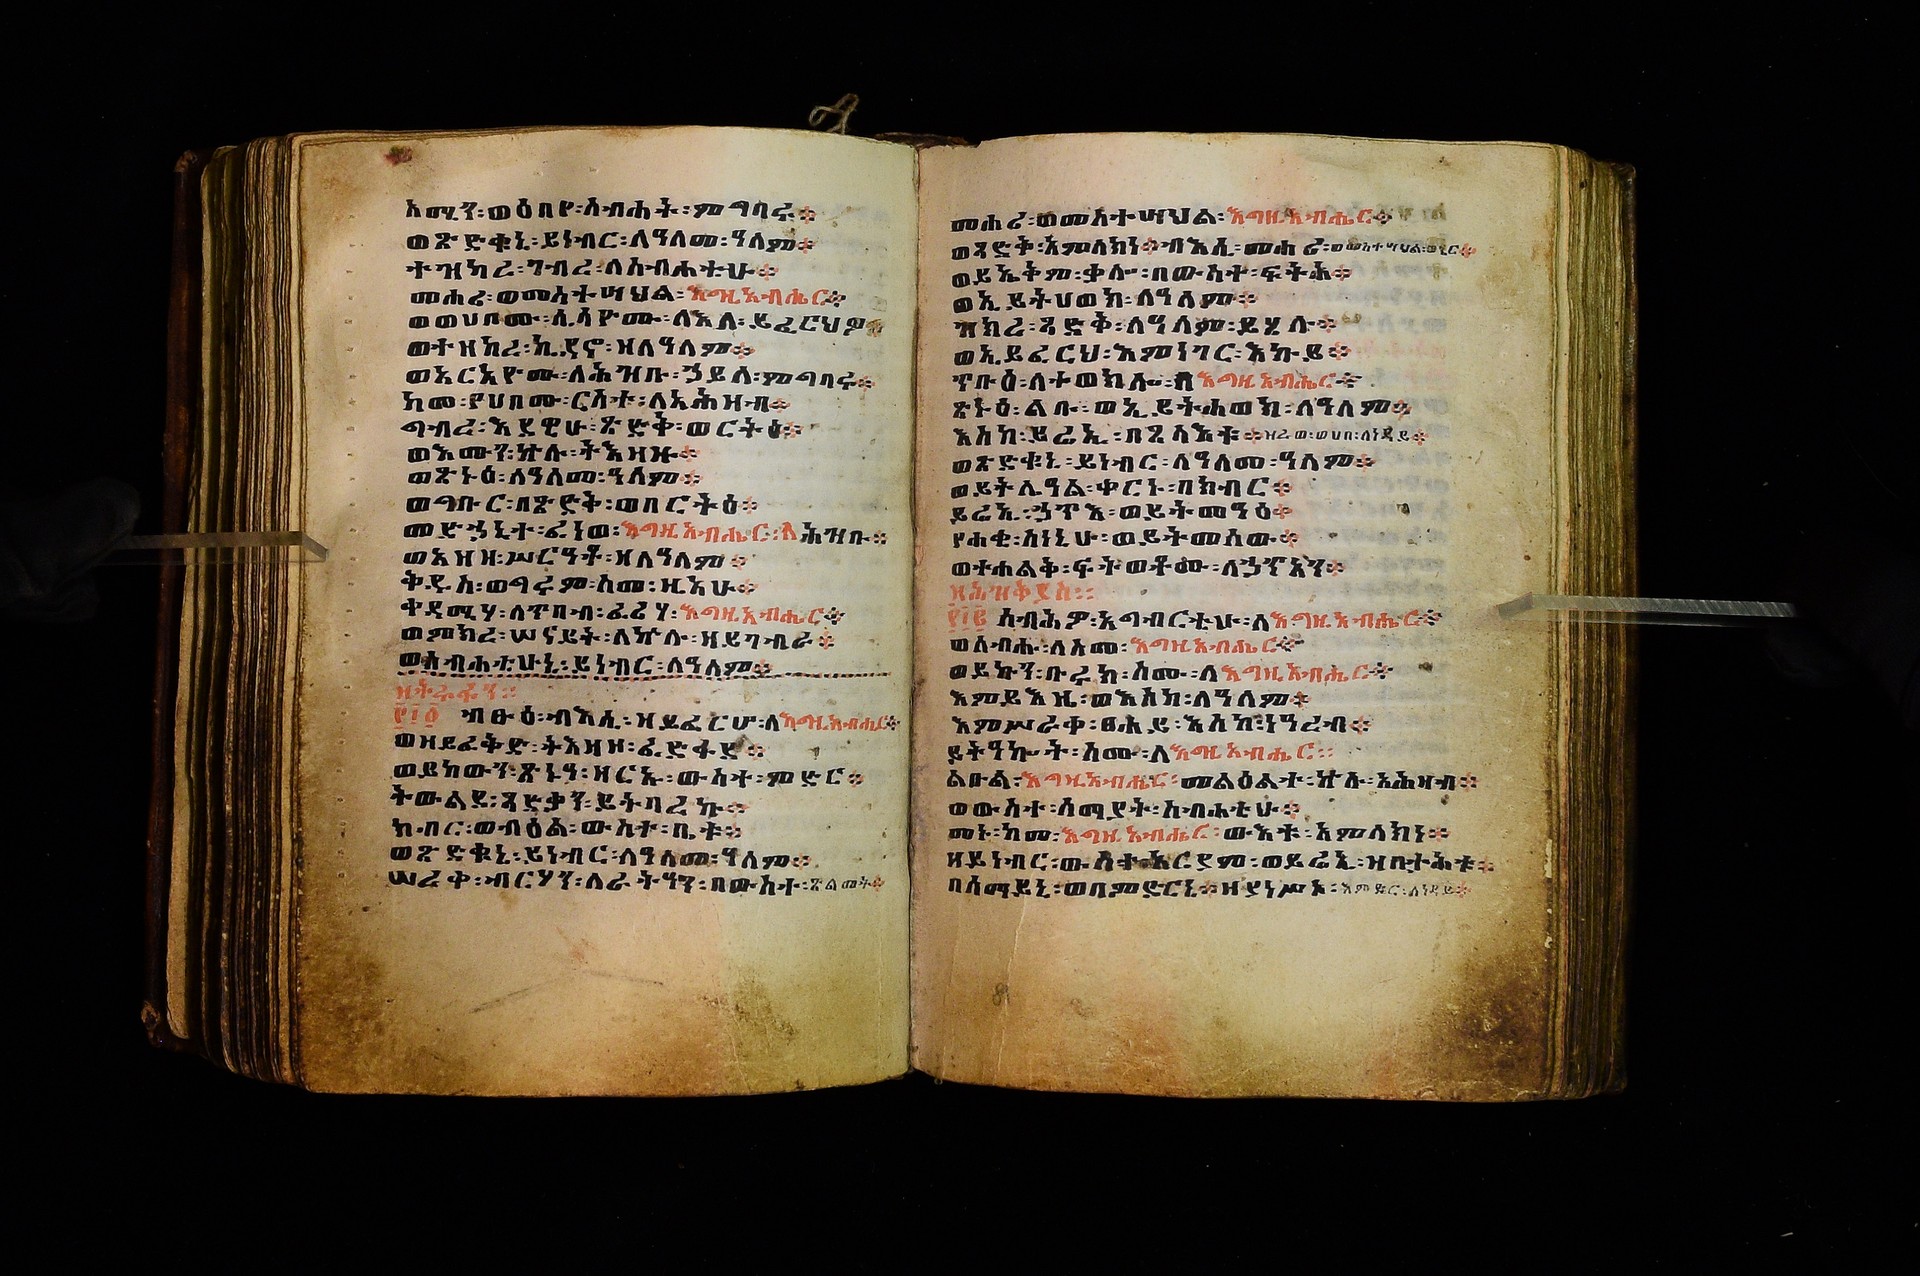 አሚን፡ወዕበየ፡ስብሐት፡ምግባሩ፨
ወጽድቁኒ፡ይነብር፡ለዓለመ፡ዓለም፨
ተዝካረ፡ገብረ፡ለስብሐቲሁ፨
መሐሪ፡ወመስተሣህል፡እግዚአብሔር፨
ወወሀቦሙ፡ሲሳዮሙ፡ለእለ፡ይፈርህዎ፨
ወተዘከረ፡ኪዳኖ፡ዘለዓለም፨
ወአርአዮሙ፡ለሕዝቡ፡ኃይለ፡ምግባሩ፨
ከመ፡የሀቦሙ፡ርስተ፡ለአሕዛብ፨
ግብረ፡እደዊሁ፡ጽድቅ፡ወርትዕ፨
ወእሙን፡ኵሉ፡ትእዛዙ፨
ወጽኑዕ፡ለዓለመ፡ዓለም፨
ወግቡር፡በጽድቅ፡ወበርትዕ፨
መድኃኒተ፡ፈነወ፡እግዚአብሔር፡ለሕዝቡ፨
ወአዘዘ፡ሥርዓቶ፡ዘለዓለም፨
ቅዱስ፡ወግሩም፡ስመ፡ዚአሁ፨
ቀዳሚሃ፡ለጥበብ፡ፈሪሃ፡እግዚአብሔር፨
ወምክረ፡ሠናይት፡ለኵሉ፡ዘይገብራ፨
ወስብሐቲሁኒ፡ይነብር፡ለዓለም፨
ዘትሩፋን፡፡
፻፲፩ ብፁዕ፡ብእሲ፡ዘይፈርሆ፡ለእግዚአብሔር፨
ወዘይፈቅድ፡ትእዛዘ፡ፈድፋደ፨
ወይከውን፡ጽኑዓ፡ዘርኡ፡ውስተ፡ምድር፨
ትውልደ፡ጻድቃን፡ይትባረኩ፨
ክብር፡ወብዕል፡ውስተ፡ቤቱ፨
ወጽድቁኒ፡ይነብር፡ለዓለመ፡ዓለም፨
ሠረቀ፡ብርሃን፡ለራትዓን፡በውስተ፡ጽልመት፨
መሐሪ፡ወመስተሣህል፡እግዚአብሔር፨
ወጻድቅ፡አምላክነ፨ብእሲ፡መሐሪ፡ወመስተሣህል፡ወኄር፨
ወይኤቅም፡ቃሎ፡በውስተ፡ፍትሕ፨
ወኢይትሀወክ፡ለዓለም፨
ዝክረ፡ጻድቅ፡ለዓለም፡ይሄሉ፨
ወኢይፈርህ፡እምነገር፡እኩይ፨
ጥቡዕ፡ለተወክሎ፡በእግዚአብሔር፨
ጽኑዕ፡ልቡ፡ወኢይትሐወክ፡ለዓለም፨
እስከ፡ይሬኢ፡በጸላእቱ፨ዘረወ፡ወሀበ፡ለነዳይ፨
ወጽድቁኒ፡ይነብር፡ለዓለመ፡ዓለም፨
ወይትሌዓል፡ቀርኑ፡በክብር፨
ይሬኢ፡ኃጥእ፡ወይትመዓዕ፨
የሐቂ፡ስነኒሁ፡ወይትመሰው፨
ወተሐልቅ፡ፍትወቶሙ፡ለኃጥአን፨
ዘሕዝቅያስ፡፡
፻፲፪ ሰብሕዎ፡አግብርቲሁ፡ለእግዚአብሔር፨
ወሰብሑ፡ለስመ፡እግዚአብሔር፨
ወይኩን፡ቡሩክ፡ስሙ፡ለእግዚአብሔር፨
እምይእዜ፡ወእስከ፡ለዓለም፨
እምሥራቀ፡ፀሐይ፡እስከ፡ነዓረብ፨
ይትዓኰት፡ስሙ፡ለእግዚአብሔር፡፡
ልዑል፡እግዚአብሔር፡መልዕልተ፡ኵሉ፡አሕዛብ፨
ወውስተ፡ሰማያት፡ስብሐቲሁ፨
መኑ፡ከመ፡እግዚአብሔር፡ውእቱ፡አምላክነ፨
ዘይነብር፡ውስተ፡አርያም፡ወይሬኢ፡ዝቡተሕቱ፨
በሰማይኒ፡ወበምድርኒ፨ዘያነሥኦ፡እምድር፡ለነዳይ፨